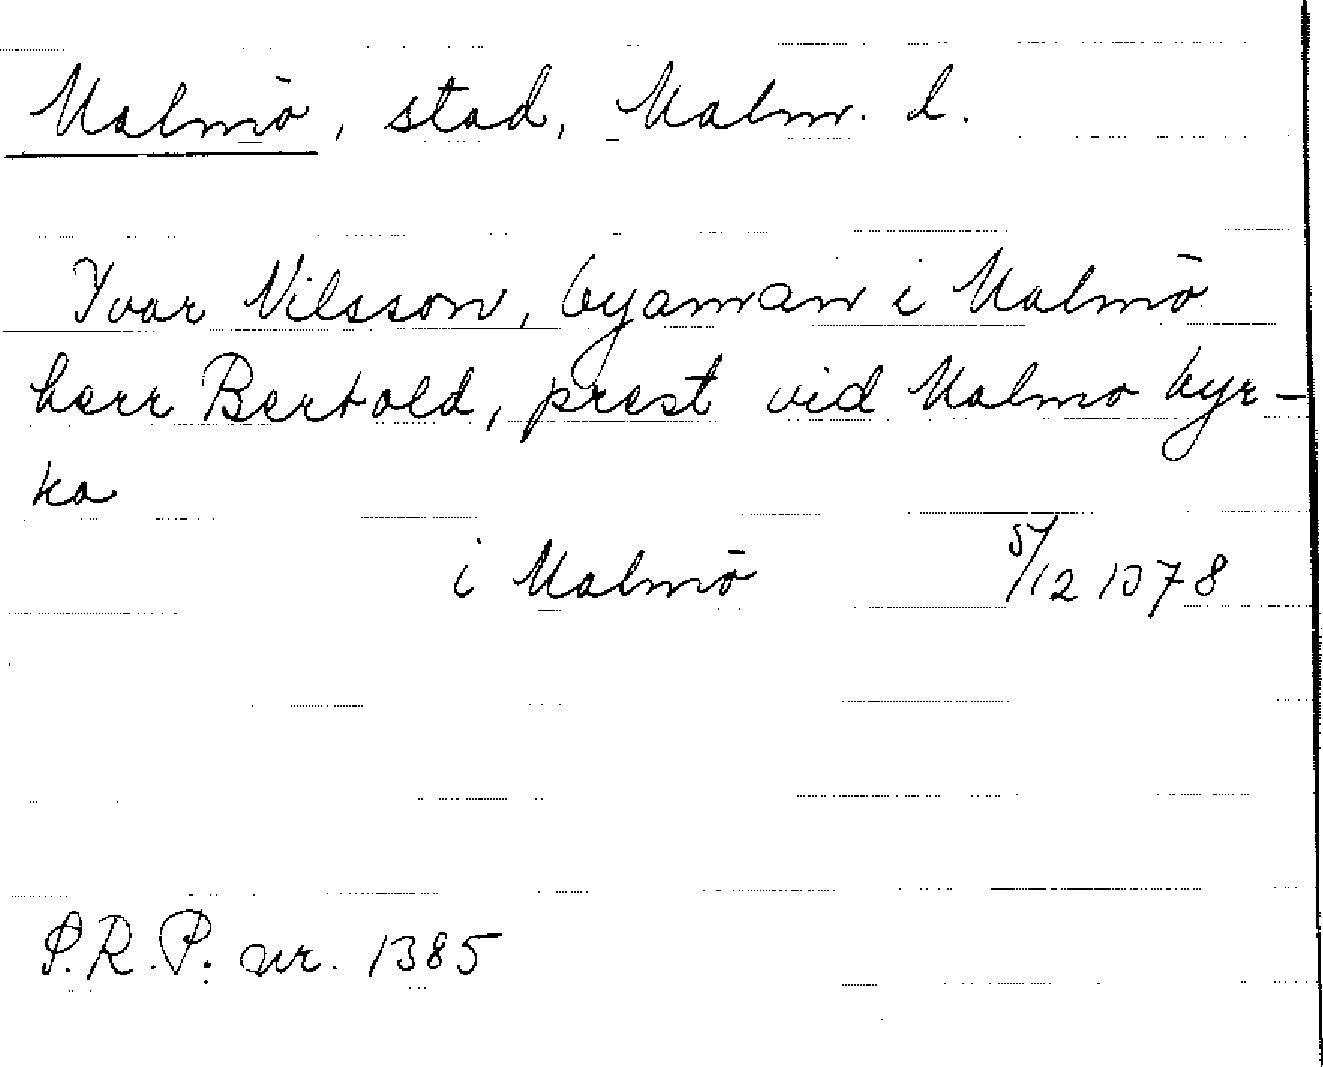 Malmö, stad, Malm. l.
Yvar Nilsson, byaman i Malmö
herr Bertold, prest vid Malmo kyr-
ka
i Malmö 5/12 1378
S.R.P. nr. 1385